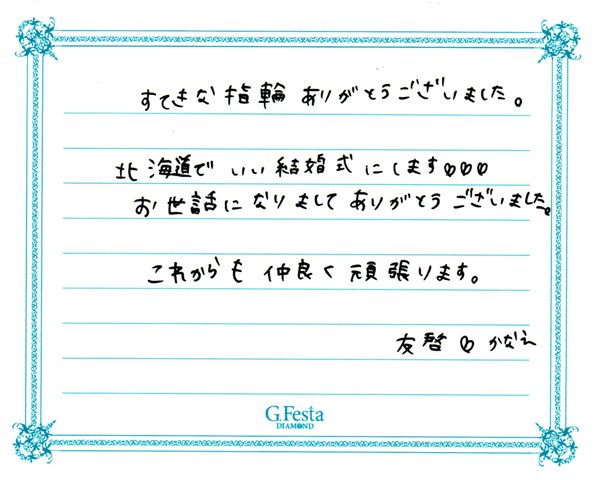 すてきな指輪ありがとうございました。
北海道でいい結婚式にします♡♡♡
お世話になりましてありがとうございました。
これからも仲良く頑張ります。
友啓♡かなえ
G.Festa
DIAMOND